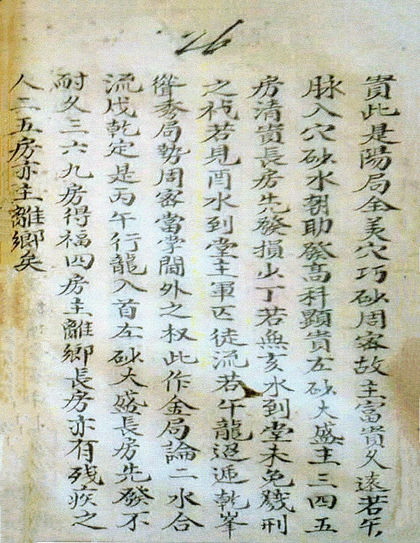 26
貴此是陽局全美穴巧砂周密故主富貴久遠若午
脉入穴砂水朝助發高科顯貴左砂大盛主三四五
房清貴長房先發損少丁若無亥水到堂未免賤刑
之禍若見酉水到堂主軍匹徒流若午龍迢遞乾峯
聳秀局勢周密當掌閫外之权此作金局論二水合
流戌乾定是丙午行龍入首左砂大盛長房先發不
耐久三六九房得福四房主離鄉長房亦有残疾之
人二五房亦主離鄉矣